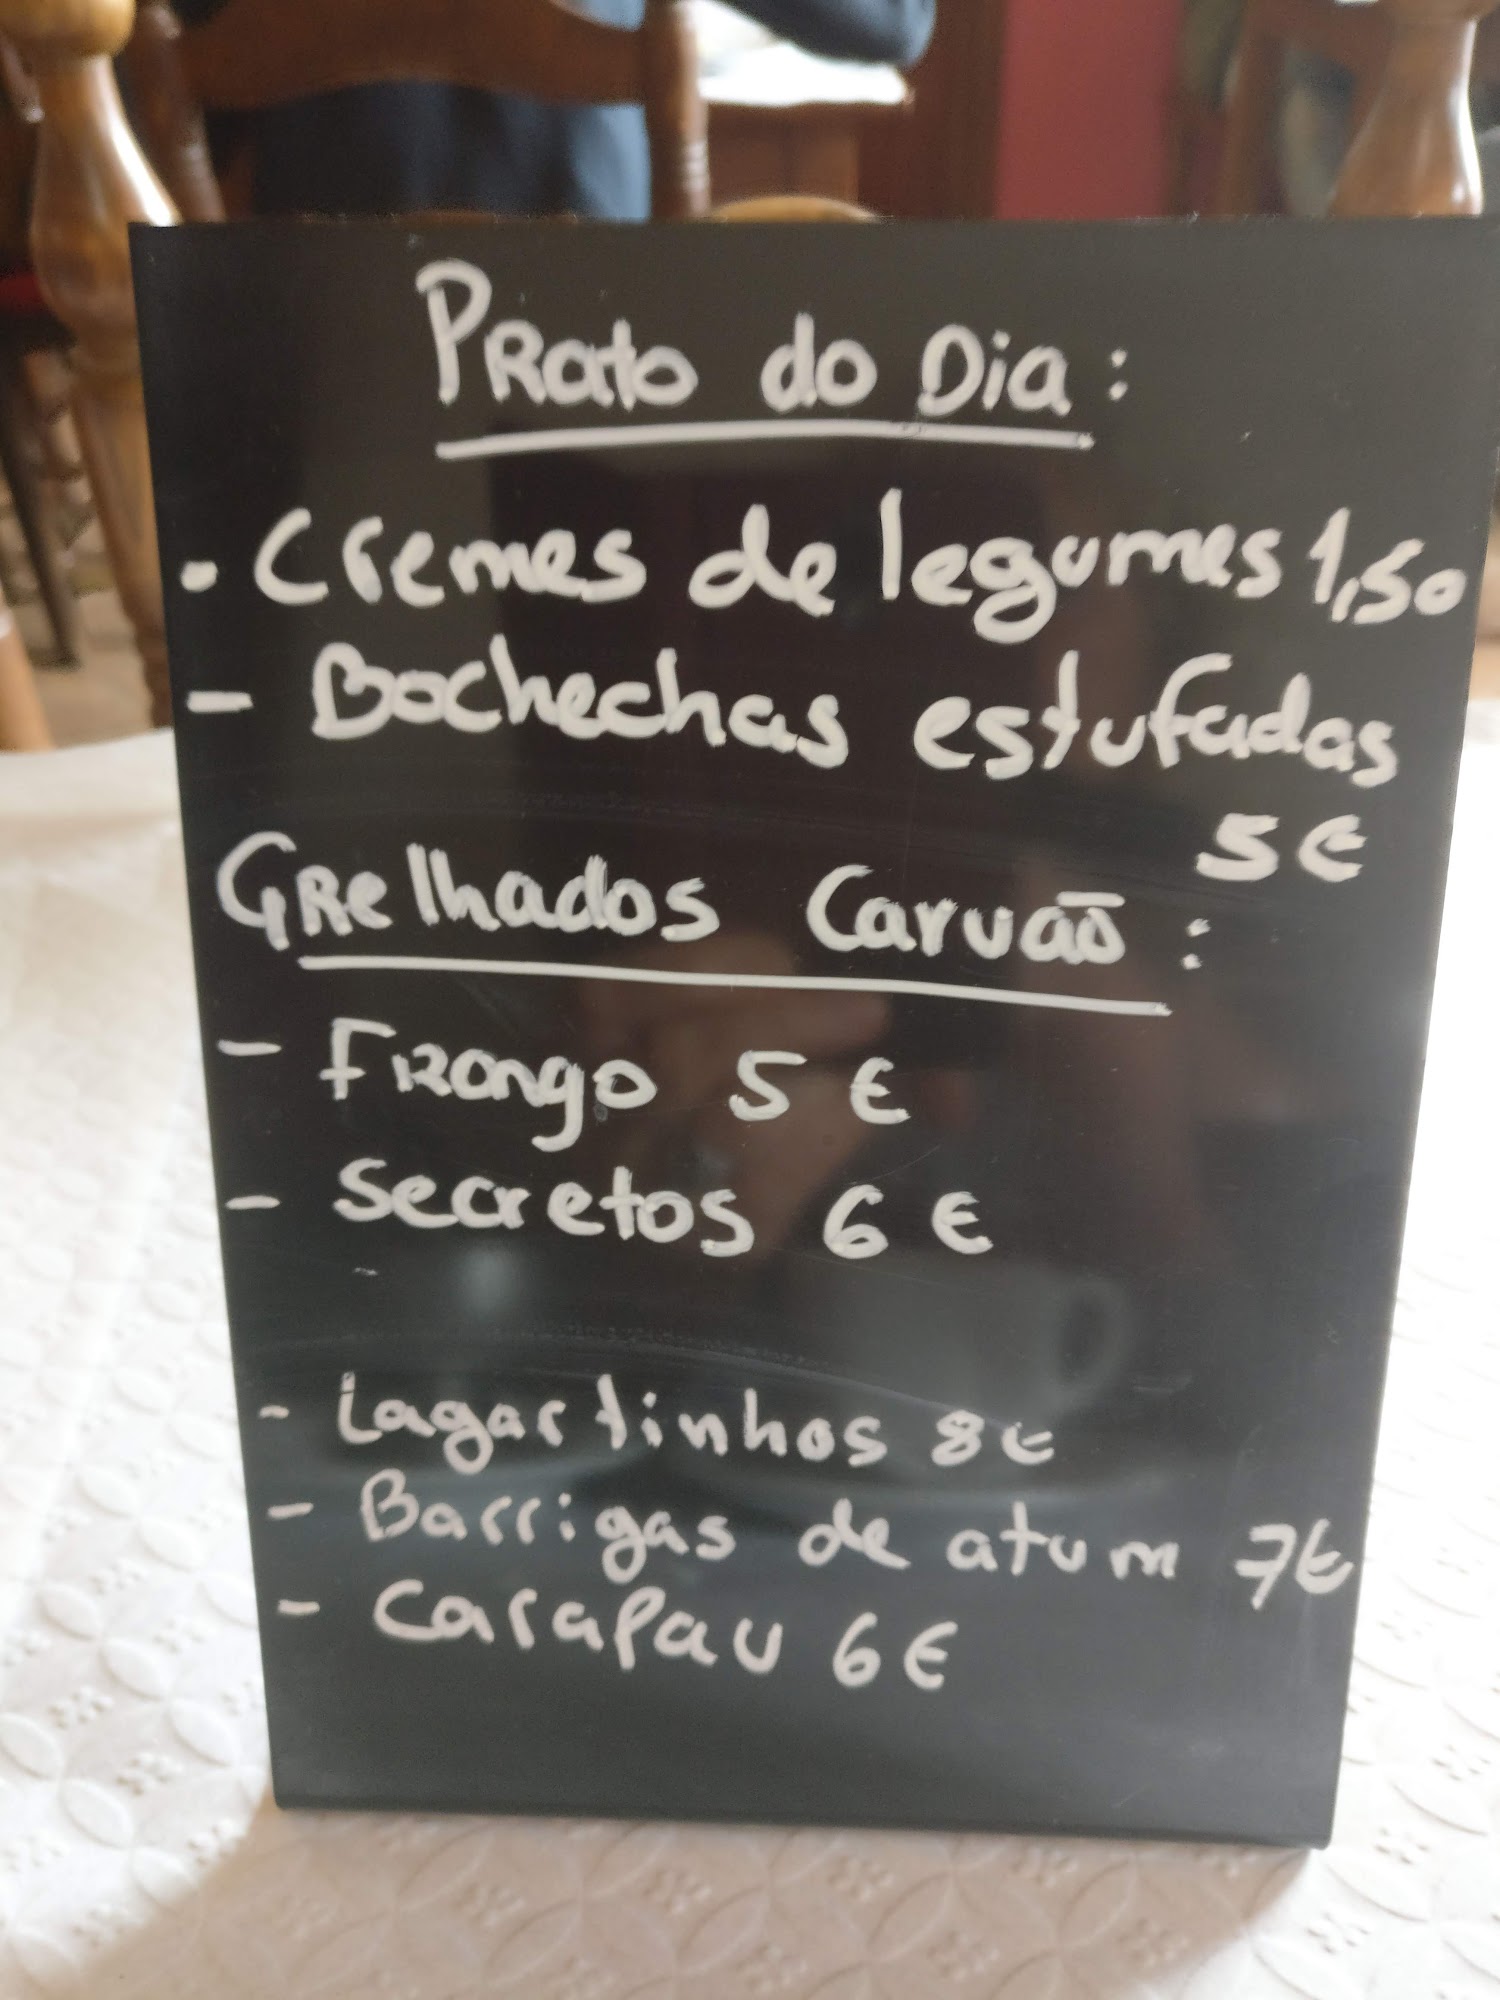 Prato do Dia:
· Cremes de legumes 1,50
- Bochechas estufadas
5€
Grelhados Carvão:
- Frango 5€
- Secretos 6€
- Lagartinhos 8€
- Barrigas de atum 7€
- Carapau 6€